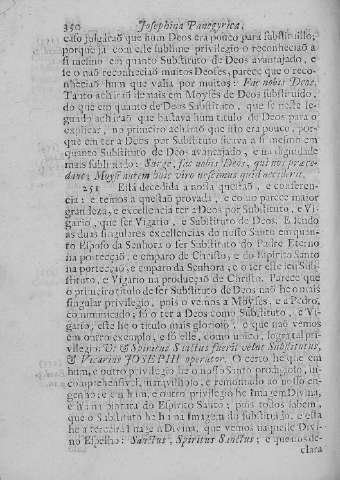 350 Josephina Panegyrica,
caso julgáraõ que hum Deos era pouco para substituillo,
porque já com esse sublime privilegio o reconheciaõ a
si mesmo em quanto Substituto de Deos avantajado, e
se o naõ reconheciaõ muitos Deoses, parece que o reco-
nheciaõ hum que valia por muitos: Fac nobis Deos.
Tanto acháraõ de mais em Moysés de Deos substituido,
do que em quanto de Deos Substituto, que se neste se-
gundo acháraõ que bastava hum titulo de Deos para o
explicar, no primeiro acháraõ que isto era pouco, por-
que em ter a Deos por Substituto ficava a si mesmo em
quanto Substituto de Deos avantejado, e na dignidade
mais sublimado: Surge, fac nobis Deos, qui nos præce-
dant; Moysi autem huic viro nescimus quid acciderit.
251 Está decedida a nossa questaõ, e conferen-
cia: e temos a questaõ provada, e como parece maior
grandeza, e excellencia ter a Deos por Substituto, e Vi-
gario, que ser Vigario, e Substituto de Deos. E sendo
as duas singulares excellencias do nosso Santo em quan-
to Esposo da Senhora o ser Substituto do Padre Eterno
na portecçaõ, e emparo de Christo, e do Espirito Santo
na portecçaõ, e emparo da Senhora; e o ter este seu Sub-
stituto, e Vigario na producçaõ de Christo. Parece que
o primeiro titulo de ser Substituto de Deos naõ he o mais
singular privilegio, pois o vemos a Moyses, e a Pedro,
communicado; só o ter a Deos como Substituto, e Vi-
gario, este he o titulo mais glorioso, e que naõ vemos
em outro exemplo, e só elle, como unico, logra tal pri-
vilegio: Ut & Spiritus Sanctus fuerit velut Substitutus,
& Vicarius JOSEPHI operator. O certo he que em
hum, e outro privilegio he o nosso Santo prodigioso, in-
comprehensivel, maravilhoso, e remontado ao nosso en-
genho; e em hum, e outro privilegio he Imagem Divina,
e huma pintura do Espirito Santo; pois todos sabem,
que o Substituto he huma Imagem do substituido, e esta
he a terceira Imagem Divina, que vemos na nesse Divi-
no Espelho: Sanctus, Spiritus Sanctus; e que nos de-
clara